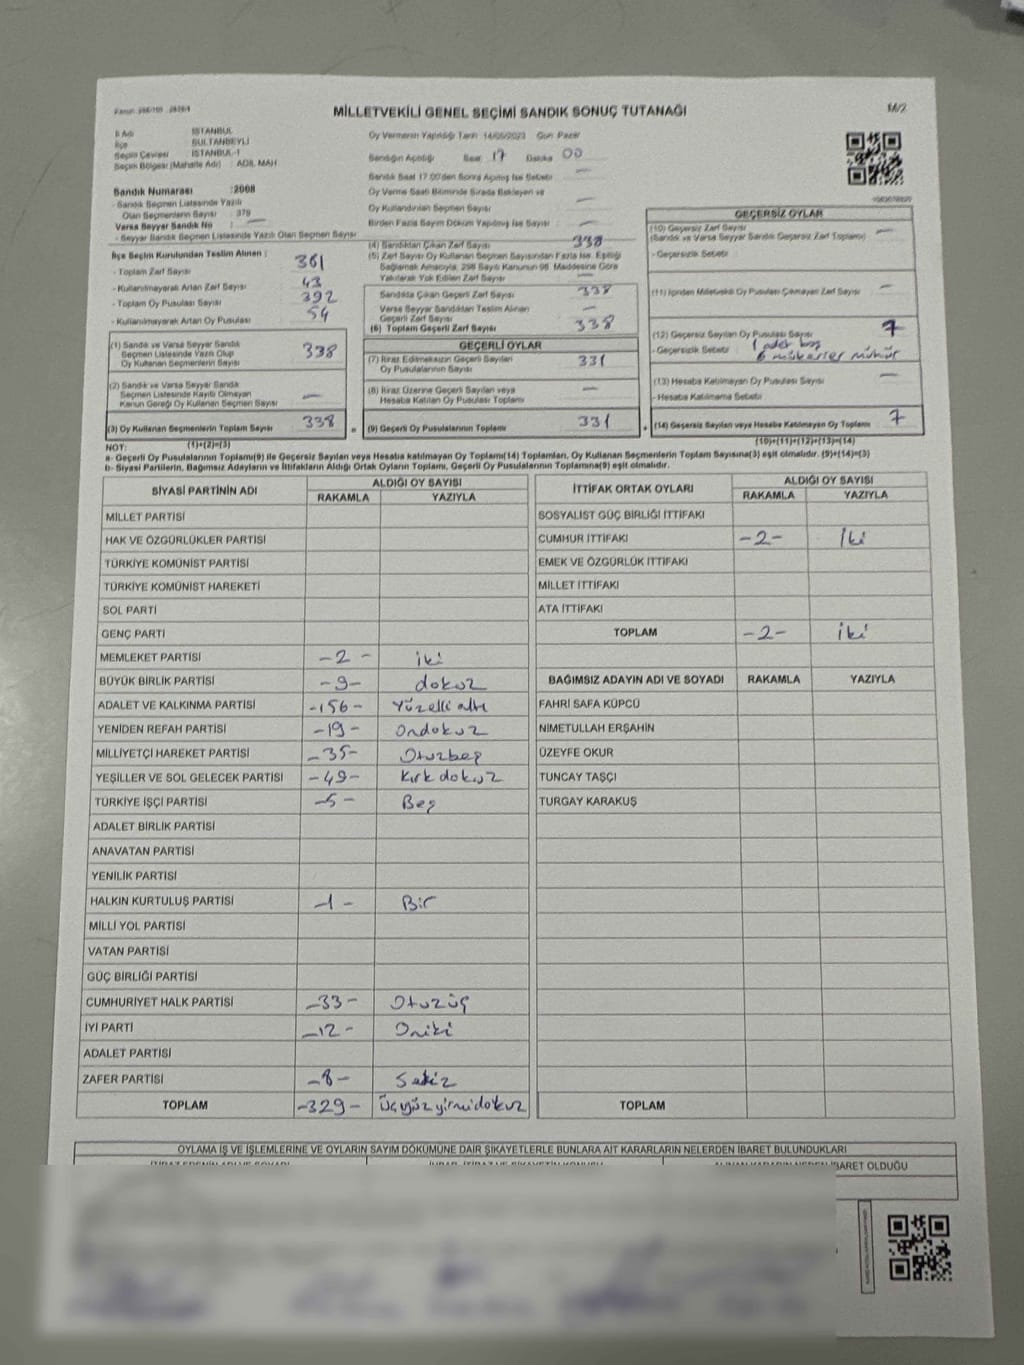 M/2
MİLLETVEKİLİ GENEL SEÇİMİ SANDIK SONUÇ TUTANAĞI
İl Adı : İSTANBUL
İlçe : SULTANBEYLİ
Seçim Çevresi : İSTANBUL-1
Seçim Bölgesi (Mahalle Adı) : ADİL MAH
Sandık Numarası :2008
- Sandık Seçmen Listesinde Yazılı
Olan Seçmenlerin Sayısı : 379
Varsa Seyyar Sandık No : —
- Seyyar Sandık Seçmen Listesinde Yazılı Olan Seçmen Sayısı —
Oy Vermenin Yapıldığı Tarih 14/05/2023 Gün Pazar
Sandığın Açıldığı Saat 17 Dakika 00
Sandık Saat 17:00'den Sonra Açılmış İse Sebebi —
Oy Verme Saati Bitiminde Sırada Bekleyen ve
Oy Kullandırılan Seçmen Sayısı —
Birden Fazla Sayım Döküm Yapılmış İse Sayısı —
İlçe Seçim Kurulundan Teslim Alınan :
- Toplam Zarf Sayısı 361
- Kullanılmayarak Artan Zarf Sayısı 43
- Toplam Oy Pusulası Sayısı 392
- Kullanılmayarak Artan Oy Pusulası 54
(1) Sandık ve Varsa Seyyar Sandık
Seçmen Listesinde Yazılı Olup
Oy Kullanan Seçmenlerin Sayısı 338
(2) Sandık ve Varsa Seyyar Sandık
Seçmen Listesinde Kayıtlı Olmayan
Kanun Gereği Oy Kullanan Seçmen Sayısı —
(3) Oy Kullanan Seçmenlerin Toplam Sayısı 338
(4) Sandıktan Çıkan Zarf Sayısı 338
(5) Zarf Sayısı Oy Kullanan Seçmen Sayısından Fazla İse, Eşitliği
Sağlamak Amacıyla, 298 Sayılı Kanunun 98. Maddesine Göre
Yakılarak Yok Edilen Zarf Sayısı —
Sandıkta Çıkan Geçerli Zarf Sayısı 338
Varsa Seyyar Sandıktan Teslim Alınan
Geçerli Zarf Sayısı —
(6) Toplam Geçerli Zarf Sayısı 338
GEÇERLİ OYLAR
(7) İtiraz Edilmeksizin Geçerli Sayılan
Oy Pusulalarının Sayısı 331
(8) İtiraz Üzerine Geçerli Sayılan veya
Hesaba Katılan Oy Pusulası Toplamı —
= (9) Geçerli Oy Pusulalarının Toplamı 331
GEÇERSİZ OYLAR
(10) Geçersiz Zarf Sayısı —
(Sandık ve Varsa Seyyar Sandık Geçersiz Zarf Toplamı)
- Geçersizlik Sebebi
(11) İçinden Milletvekili Oy Pusulası Çıkmayan Zarf Sayısı —
(12) Geçersiz Sayılan Oy Pusulası Sayısı 7
- Geçersizlik Sebebi : 1 adet boş
6 mükerrer mühür
(13) Hesaba Katılmayan Oy Pusulası Sayısı —
- Hesaba Katılmama Sebebi
+ (14) Geçersiz Sayılan veya Hesaba Katılmayan Oy Toplamı 7
NOT: (1)+(2)=(3) (10)+(11)+(12)+(13)=(14)
a- Geçerli Oy Pusulalarının Toplamı(9) ile Geçersiz Sayılan veya Hesaba Katılmayan Oy Toplamı(14) Toplamları, Oy Kullanan Seçmenlerin Toplam Sayısına(3) eşit olmalıdır. (9)+(14)=(3)
b- Siyasi Partilerin, Bağımsız Adayların ve İttifakların Aldığı Ortak Oyların Toplamı, Geçerli Oy Pusulalarının Toplamına(9) eşit olmalıdır.
SİYASİ PARTİNİN ADI ALDIĞI OY SAYISI
RAKAMLA YAZIYLA
MİLLET PARTİSİ
HAK VE ÖZGÜRLÜKLER PARTİSİ
TÜRKİYE KOMÜNİST PARTİSİ
TÜRKİYE KOMÜNİST HAREKETİ
SOL PARTİ
GENÇ PARTİ
MEMLEKET PARTİSİ -2- iki
BÜYÜK BİRLİK PARTİSİ -9- dokuz
ADALET VE KALKINMA PARTİSİ -156- Yüzelli altı
YENİDEN REFAH PARTİSİ -19- Ondokuz
MİLLİYETÇİ HAREKET PARTİSİ -35- Otuzbeş
YEŞİLLER VE SOL GELECEK PARTİSİ -49- Kırk dokuz
TÜRKİYE İŞÇİ PARTİSİ -5- Beş
ADALET BİRLİK PARTİSİ
ANAVATAN PARTİSİ
YENİLİK PARTİSİ
HALKIN KURTULUŞ PARTİSİ -1- Bir
MİLLİ YOL PARTİSİ
VATAN PARTİSİ
GÜÇ BİRLİĞİ PARTİSİ
CUMHURİYET HALK PARTİSİ -33- Otuzüç
İYİ PARTİ -12- Oniki
ADALET PARTİSİ
ZAFER PARTİSİ -8- Sekiz
TOPLAM -329- Üçyüz yirmi dokuz
İTTİFAK ORTAK OYLARI ALDIĞI OY SAYISI
RAKAMLA YAZIYLA
SOSYALİST GÜÇ BİRLİĞİ İTTİFAKI
CUMHUR İTTİFAKI -2- İki
EMEK VE ÖZGÜRLÜK İTTİFAKI
MİLLET İTTİFAKI
ATA İTTİFAKI
TOPLAM -2- iki
BAĞIMSIZ ADAYIN ADI VE SOYADI RAKAMLA YAZIYLA
FAHRİ SAFA KÜPCÜ
NİMETULLAH ERŞAHİN
ÜZEYFE OKUR
TUNCAY TAŞÇI
TURGAY KARAKUŞ
TOPLAM
OYLAMA İŞ VE İŞLEMLERİNE VE OYLARIN SAYIM DÖKÜMÜNE DAİR ŞİKAYETLERLE BUNLARA AİT KARARLARIN NELERDEN İBARET BULUNDUKLARI
İBARET OLDUĞU